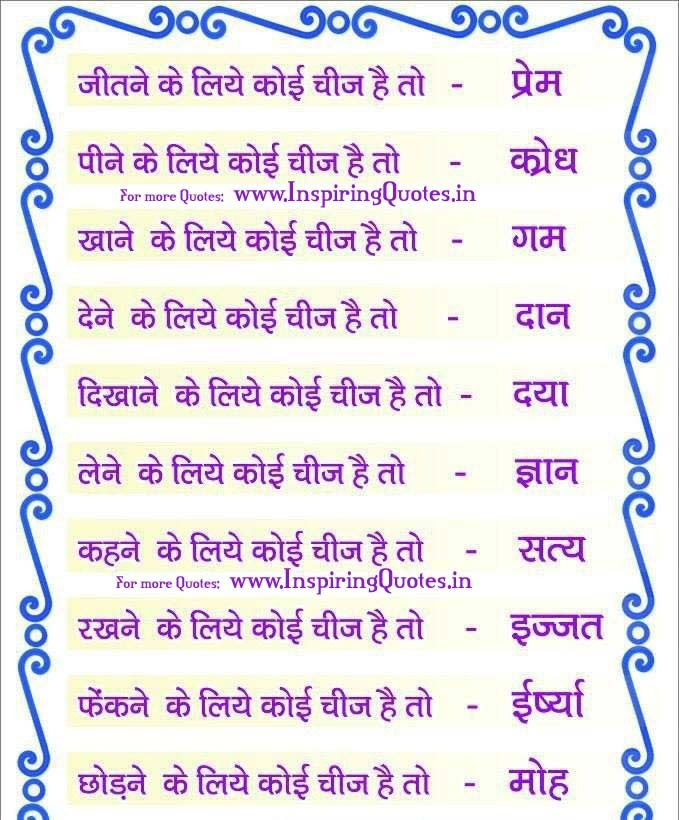 जीतने के लिये कोई चीज है तो - प्रेम
पीने के लिये कोई चीज है तो - क्रोध
For more Quotes: www.InspiringQuotes.in
खाने के लिये कोई चीज है तो - गम
देने के लिये कोई चीज है तो - दान
दिखाने के लिये कोई चीज है तो - दया
लेने के लिये कोई चीज है तो - ज्ञान
कहने के लिये कोई चीज है तो - सत्य
For more Quotes: www.InspiringQuotes.in
रखने के लिये कोई चीज है तो - इज्जत
फेंकने के लिये कोई चीज है तो - ईर्ष्या
छोड़ने के लिये कोई चीज है तो - मोह